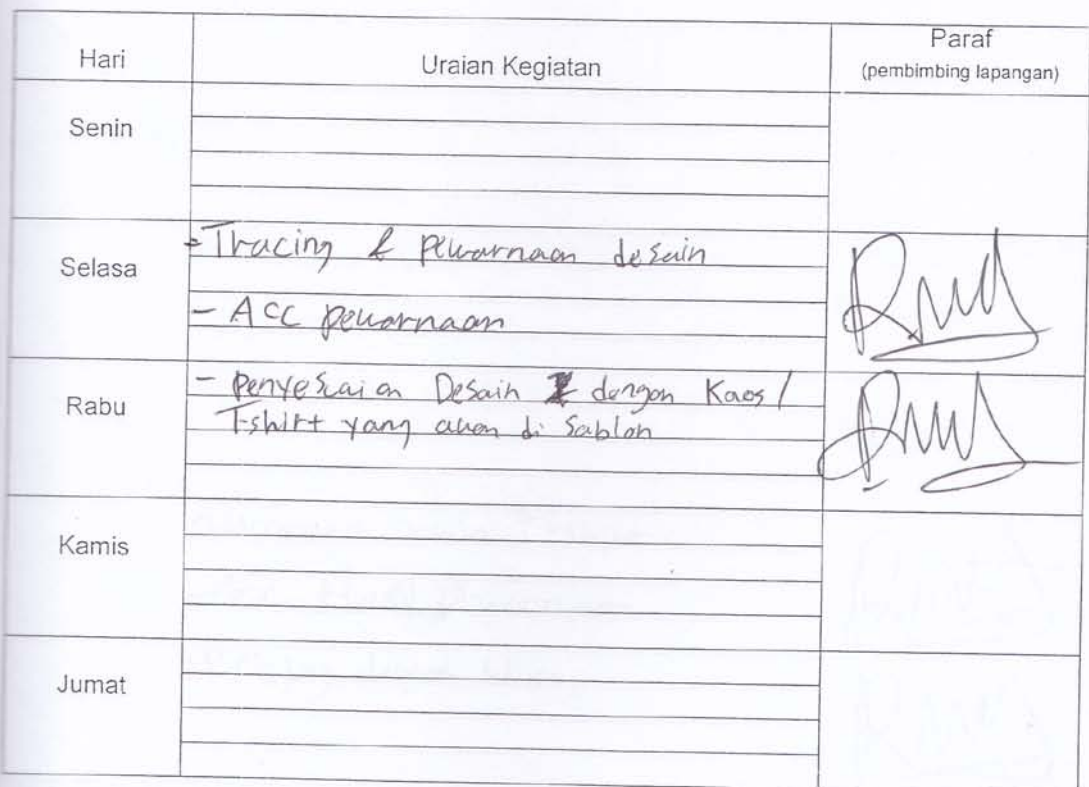 Hari Uraian Kegiatan Paraf
(pembimbing lapangan)
Senin
Selasa
- Tracing & pewarnaan desain
- ACC pewarnaan
Rabu
- Penyesuaian Desain dengan Kaos /
T-shirt yang akan di Sablon
Kamis
Jumat